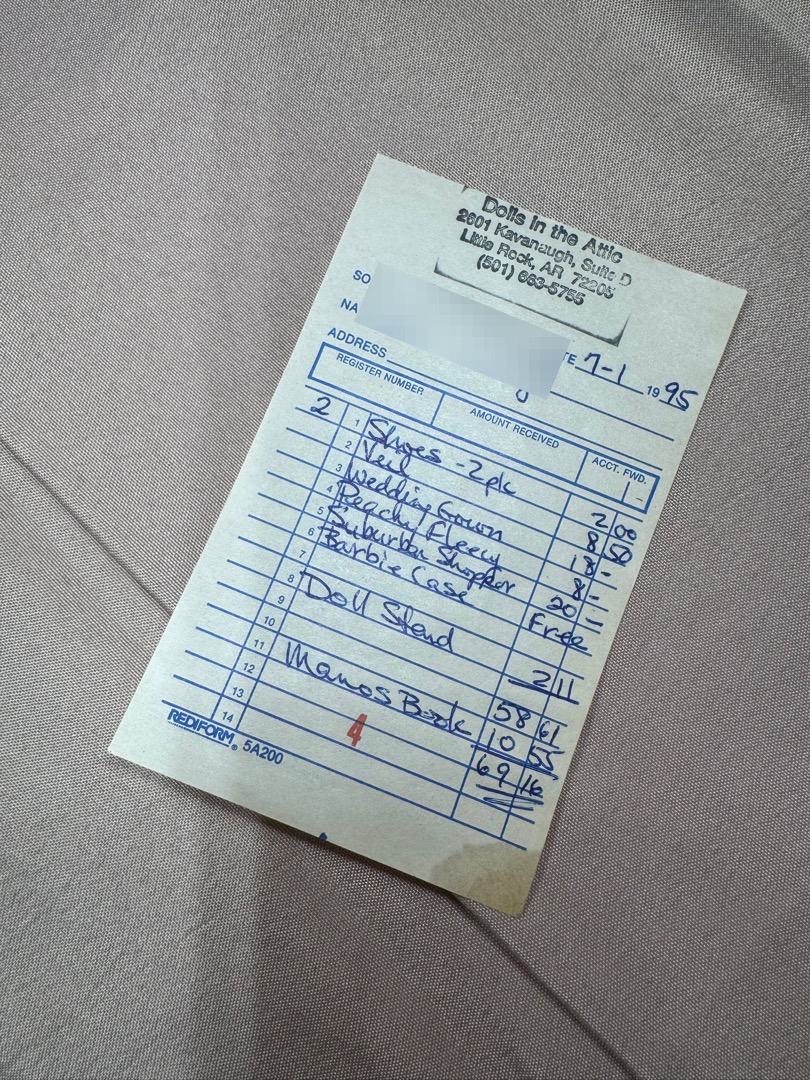 Dolls in the Attic
2601 Kavanaugh, Suite D
Little Rock, AR 72205
(501) 663-5755
SO
NA
TE 7-1 1995
ADDRESS
REGISTER NUMBER AMOUNT RECEIVED ACCT. FWD.
2 1 Shoes - 2 pk 2 00
2 Veil 8 50
3 Wedding Gown 18 -
4 Peachy Fleecy 8 -
5 Suburban Shopper 20 -
6 Barbie Case Free
7
8 Doll Stand 2 11
9 58 61
10 10 55
11 Manos Book 69 16
12
13
14 4
REDIFORM® 5A200